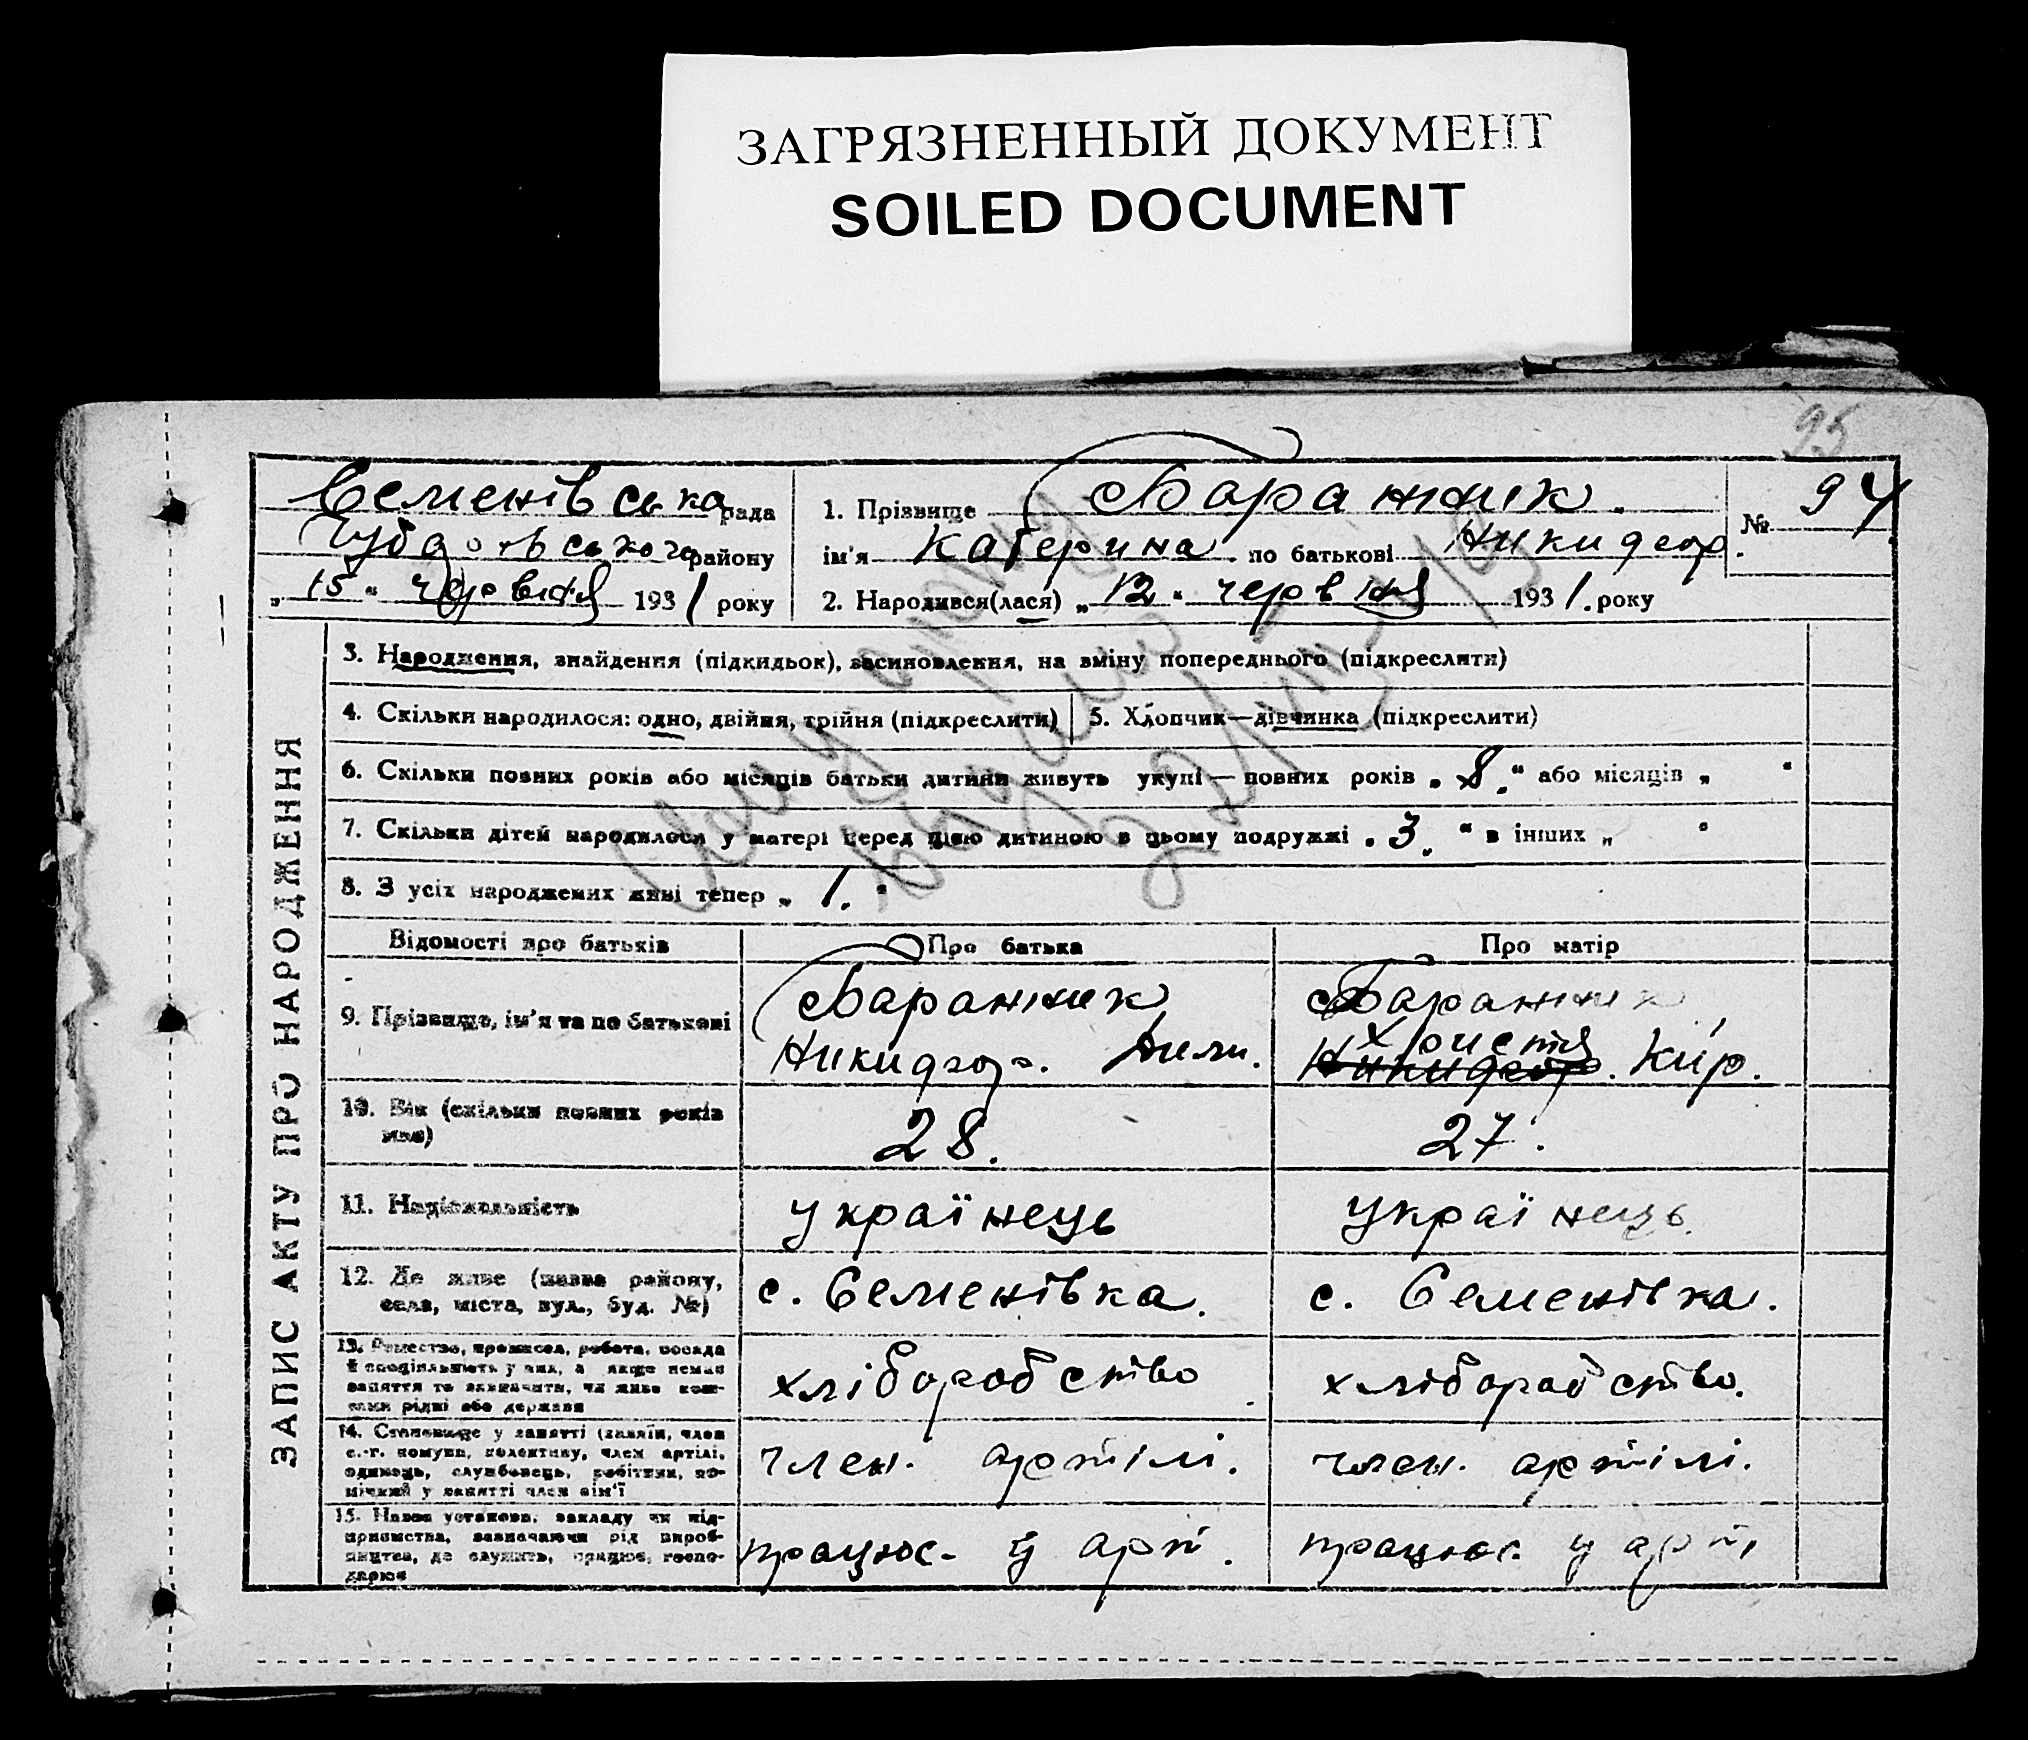 ЗАГРЯЗНЕННЫЙ ДОКУМЕНТ
SOILED DOCUMENT
95
Семенівська рада
району
„ 15 “ червня 1931 року
1. Прізвище Баранник.
ім'я Катерина по батькові Никифор.
№ 94
2. Народився(лася) „ 12 “ червня 1931. року
ЗАПИС АКТУ ПРО НАРОДЖЕННЯ
3. Народження, знайдення (підкидьок), засиновлення, на зміну попереднього (підкреслити)
4. Скільки народилося: одно, двійня, трійня (підкреслити)
5. Хлопчик—дівчинка (підкреслити)
6. Скільки повних років або місяців батьки дитини живуть укупі — повних років „ 8. “ або місяців „ “
7. Скільки дітей народилося у матері перед цією дитиною в цьому подружжі „ 3 “ в інших „ “
8. З усіх народжених живі тепер „ 1. “
Відомості про батьків
Про батька
Про матір
9. Прізвище, ім'я та по батькові
Баранник
Никифор.
Баранник
Христя
Никифор. Кир.
10. Вік (скільки повних років має)
28.
27.
11. Національність
українець
українець.
12. Де живе (назва району, села, міста, вул., буд. №)
с. Семенівка.
с. Семенівка.
13. Ремество, промисел, робота, посада й спеціяльність у них, а якщо немає заняття то зазначити, чи живе коштами рідні або держави
хліборобство
хліборобство.
14. Становище у занятті (хазяїн, член с.-г. комуни, колективу, член артілі, одинець, службовець, робітник, помічний у занятті член сім'ї
член. артілі.
член. артілі.
15. Назва установи, закладу чи підприємства, зазначаючи рід виробництва, де служить, працює, господарює
працює у арт.
працює у арт.